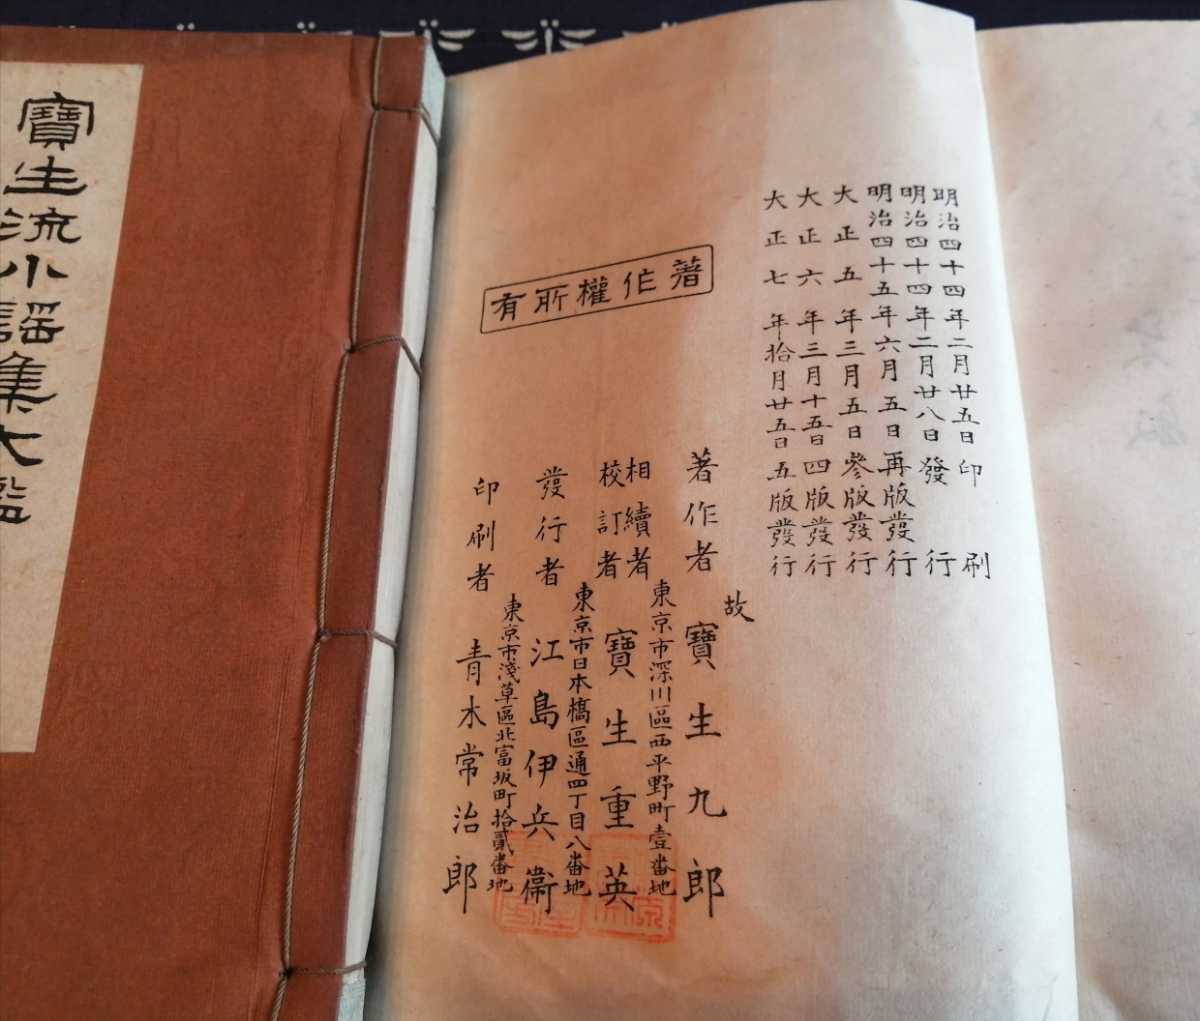 寶生流小謡集大鑑
明治四十四年二月廿五日印刷
明治四十四年二月廿八日發行
明治四十五年六月五日再版發行
大正五年三月五日參版發行
大正六年三月十五日四版發行
大正七年拾月廿五日五版發行
著作權所有
著作者 故 寶生九郎
東京市深川區西平野町壹番地
相續者
校訂者 寶生重英
東京市日本橋區通四丁目八番地
發行者 江島伊兵衞
東京市淺草區北富坂町拾貳番地
印刷者 青木常治郎